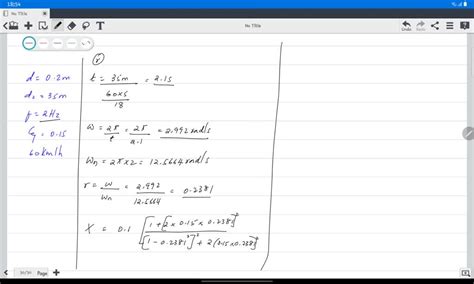 18:54
No Title
No Title
Undo
Redo
Share
Menu
(r)
d = 0.2m
d₀ = 35m
f = 2Hz
ζ = 0.15
60 km/h
t = 35m / (60×5/18) = 2.1s
ω = 2π/t = 2π/2.1 = 2.992 rad/s
Wn = 2π×2 = 12.5664 rad/s
r = ω/Wn = 2.992/12.5664 = 0.2381
X = 0.1 [1+[2×0.15×0.2381]² / [1-0.2381²]² + 2(0.15×0.2381]²